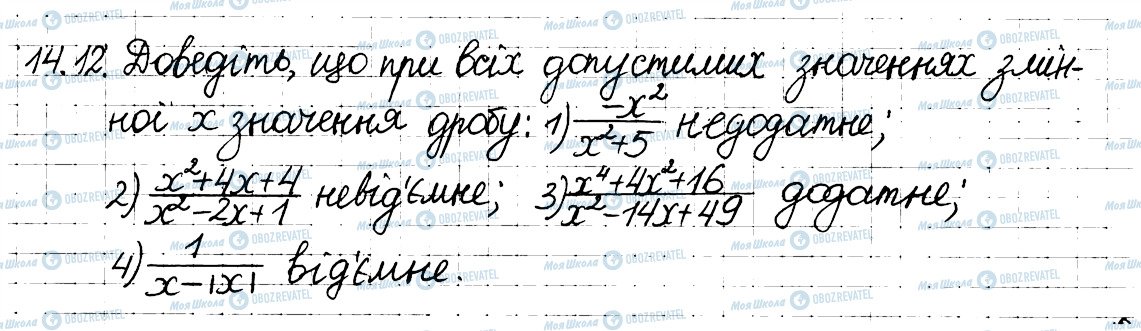 14.12. Доведіть, що при всіх допустимих значеннях змін-
ної x значення дробу: 1) -x²/(x²+5) недодатне;
2) (x²+4x+4)/(x²-2x+1) невід'ємне; 3) (x⁴+4x²+16)/(x²-14x+49) додатне;
4) 1/(x-|x|) від'ємне.